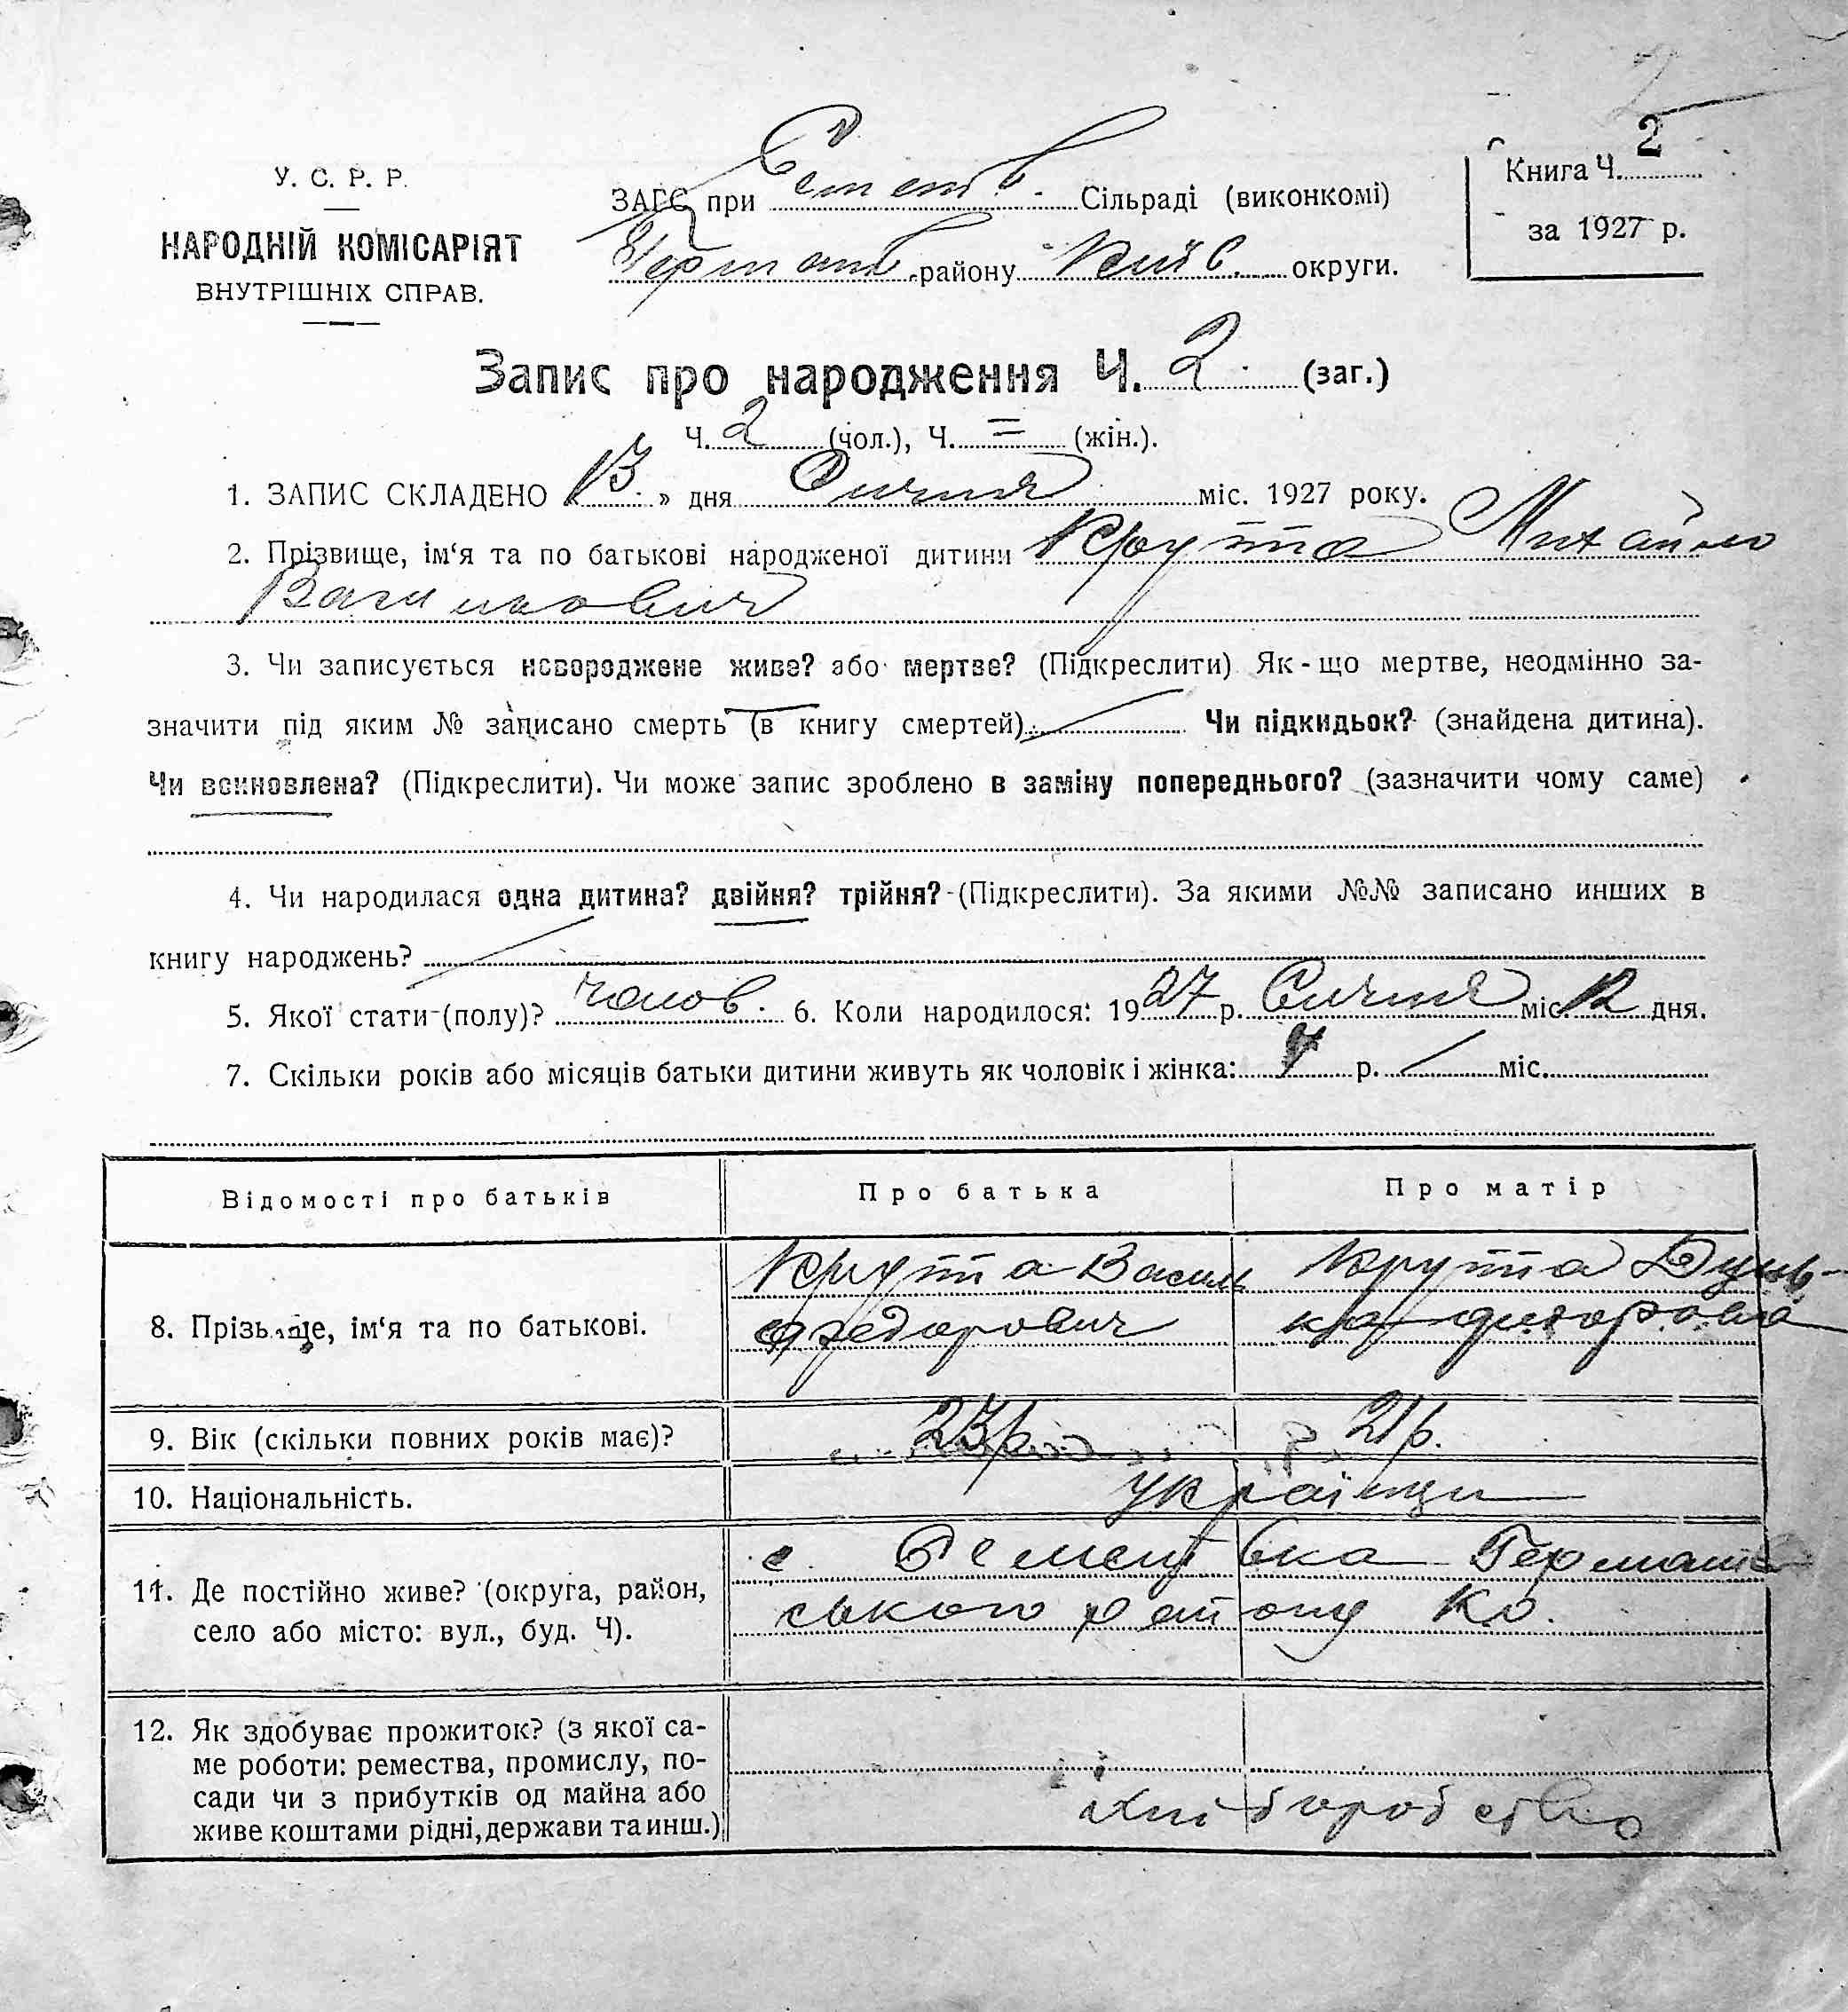 2
У. С. Р. Р.
НАРОДНІЙ КОМІСАРІЯТ
ВНУТРІШНІХ СПРАВ.
ЗАГС при Сільраді (виконкомі)
району Київ. округи.
Книга Ч. 2
за 1927 р.
Запис про народження Ч. 2 (заг.)
Ч. 2 (чол.), Ч. = (жін.).
1. ЗАПИС СКЛАДЕНО « 13 » дня Січня міс. 1927 року.
2. Прізвище, ім‘я та по батькові народженої дитини Крупа Михайло
Васильович
3. Чи записується новороджене живе? або мертве? (Підкреслити) Як-що мертве, неодмінно за-
значити під яким № записано смерть (в книгу смертей) Чи підкидьок? (знайдена дитина).
Чи всиновлена? (Підкреслити). Чи може запис зроблено в заміну попереднього? (зазначити чому саме)
4. Чи народилася одна дитина? двійня? трійня? (Підкреслити). За якими №№ записано инших в
книгу народжень?
5. Якої стати (полу)? чолов. 6. Коли народилося: 1927 р. Січня міс. 12 дня.
7. Скільки років або місяців батьки дитини живуть як чоловік і жінка: 4 р. міс.
Відомості про батьків Про батька Про матір
8. Прізвище, ім‘я та по батькові. Крупа Василь Крупа Дунь-
Федорович ка
9. Вік (скільки повних років має)? 23 р. 21 р.
10. Національність. українци
11. Де постійно живе? (округа, район, с.
село або місто: вул., буд. Ч). ського району К.о.
12. Як здобуває прожиток? (з якої са-
ме роботи: ремества, промислу, по-
сади чи з прибутків од майна або
живе коштами рідні, держави та инш.) хліборобство